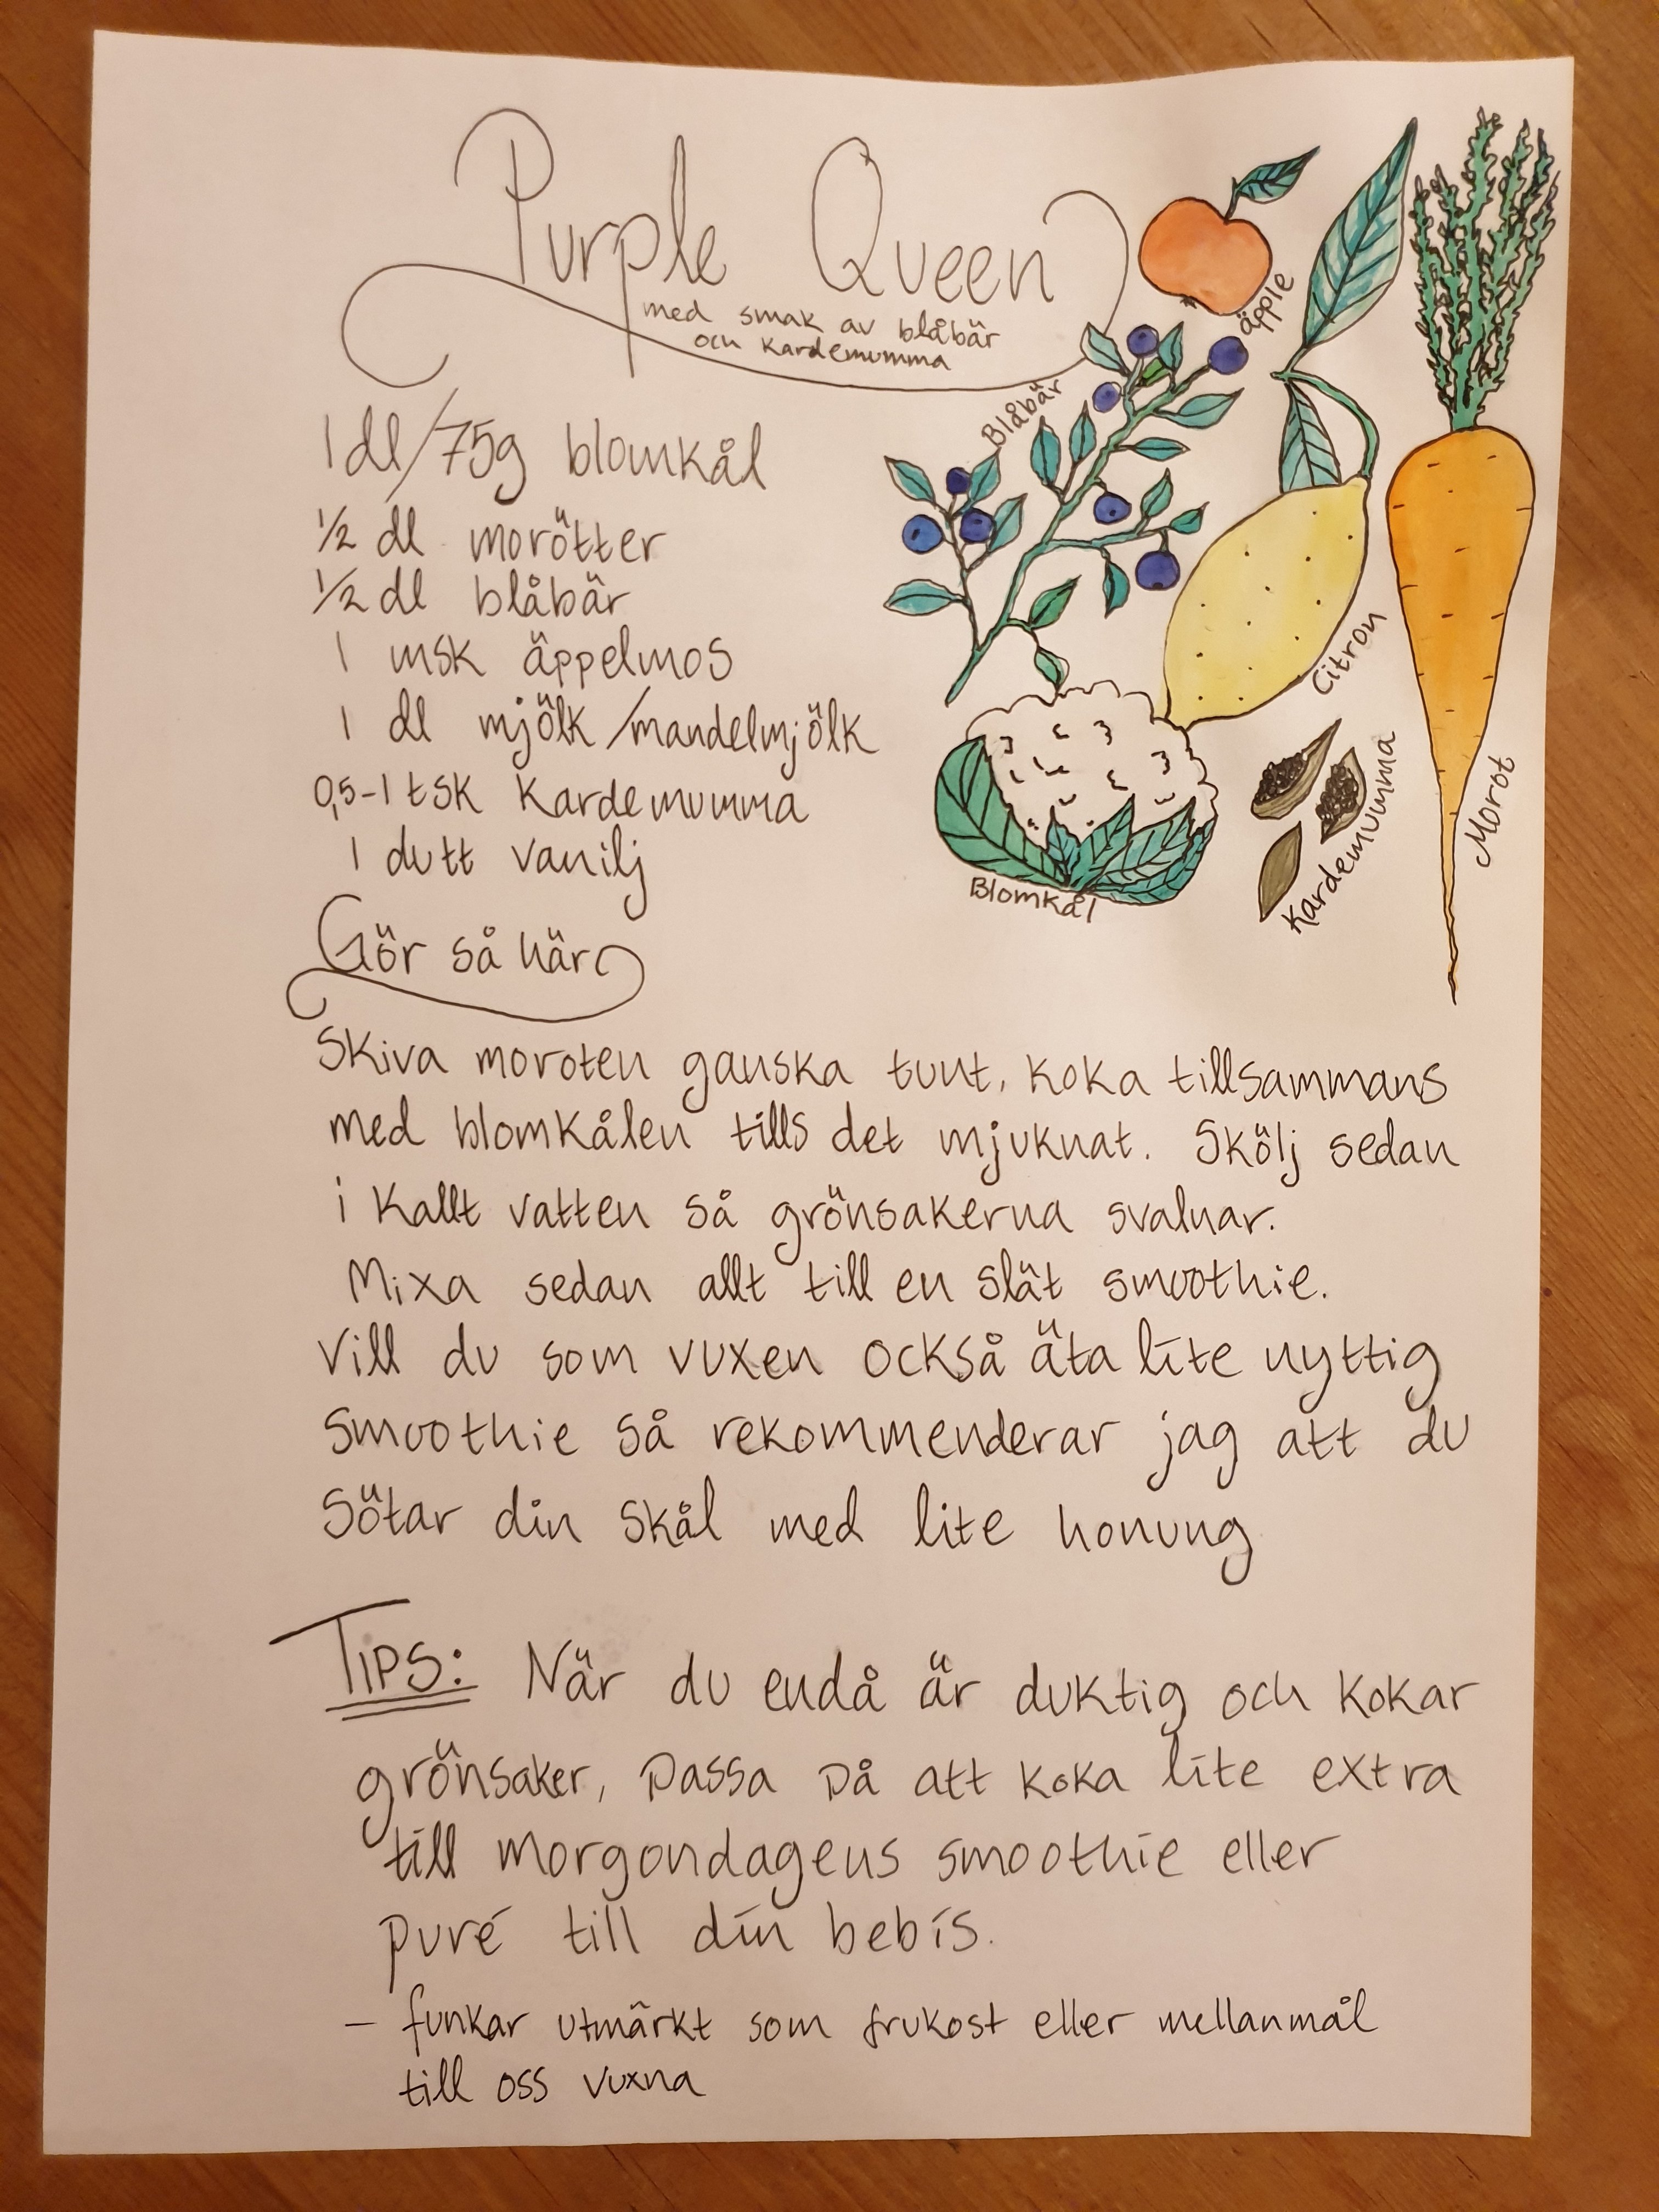 Purple Queen
med smak av blåbär
och kardemumma
äpple
Blåbär
Citron
Morot
Kardemumma
Blomkål
1 dl/75g blomkål
1/2 dl morötter
1/2 dl blåbär
1 msk äppelmos
1 dl mjölk/mandelmjölk
0,5-1 tsk kardemumma
1 dutt vanilj
Gör så här
Skiva moroten ganska tunt, koka tillsammans
med blomkålen tills det mjuknat. Skölj sedan
i kallt vatten så grönsakerna svalnar.
Mixa sedan allt till en slät smoothie.
Vill du som vuxen också äta lite nyttig
smoothie så rekommenderar jag att du
sötar din skål med lite honung
TIPS: När du endå är duktig och kokar
grönsaker, passa på att koka lite extra
till morgondagens smoothie eller
puré till din bebis.
- funkar utmärkt som frukost eller mellanmål
till oss vuxna